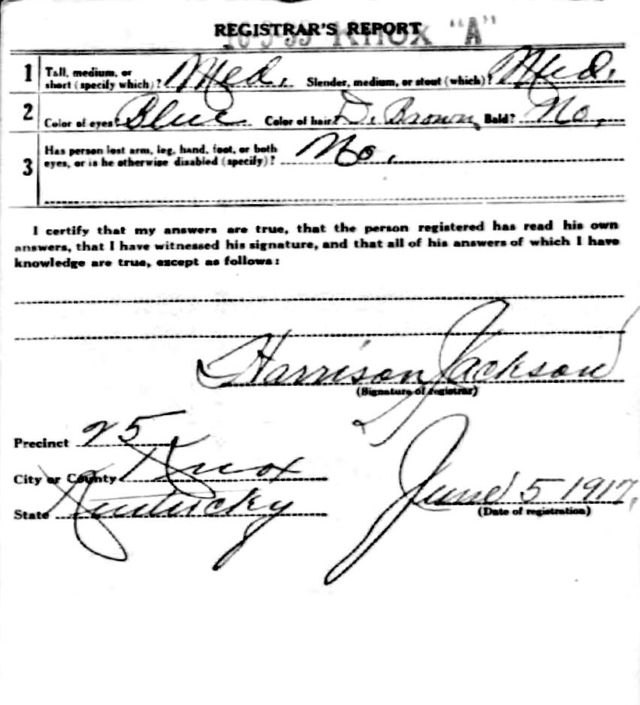 REGISTRAR'S REPORT
KNOX "A"
1 Tall, medium, or short (specify which)? Med. Slender, medium, or stout (which)? Med.
2 Color of eyes? Blue Color of hair D. Brown Bald? No.
3 Has person lost arm, leg, hand, foot, or both
eyes, or is he otherwise disabled (specify)? No.
I certify that my answers are true, that the person registered has read his own
answers, that I have witnessed his signature, and that all of his answers of which I have
knowledge are true, except as follows:
Harrison Jackson
(Signature of registrar)
Precinct 25
City or County Knox
State Kentucky
June 5 1917,
(Date of registration)